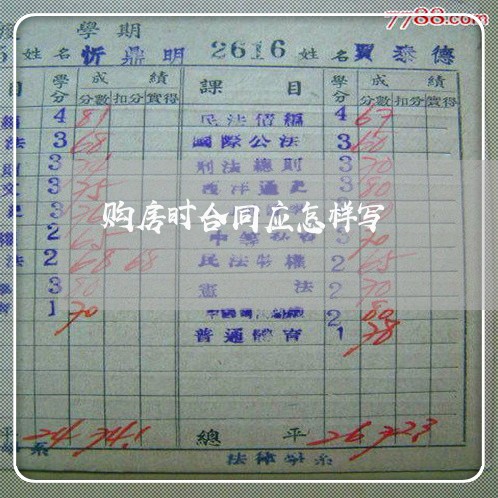 7788.com
學期
姓名 忻鼎明 2616 姓名 賈泰德
目 學分 成績 課目 學分 成績
分數 扣分 實得 分數 扣分 實得
4 81 民法債編 4 67
法 3 68 國際公法 3 60
3 刑法總則 3 70
3 75 西洋通史 3 80
购房时合同应怎样写
2 65 3 70
法 2 68 68 民法物權 2 65
3 80 憲法 2 70
1 70 2 80
普通體育 1 78
平 24 74.1 總平 26 72.3
系 法律學系